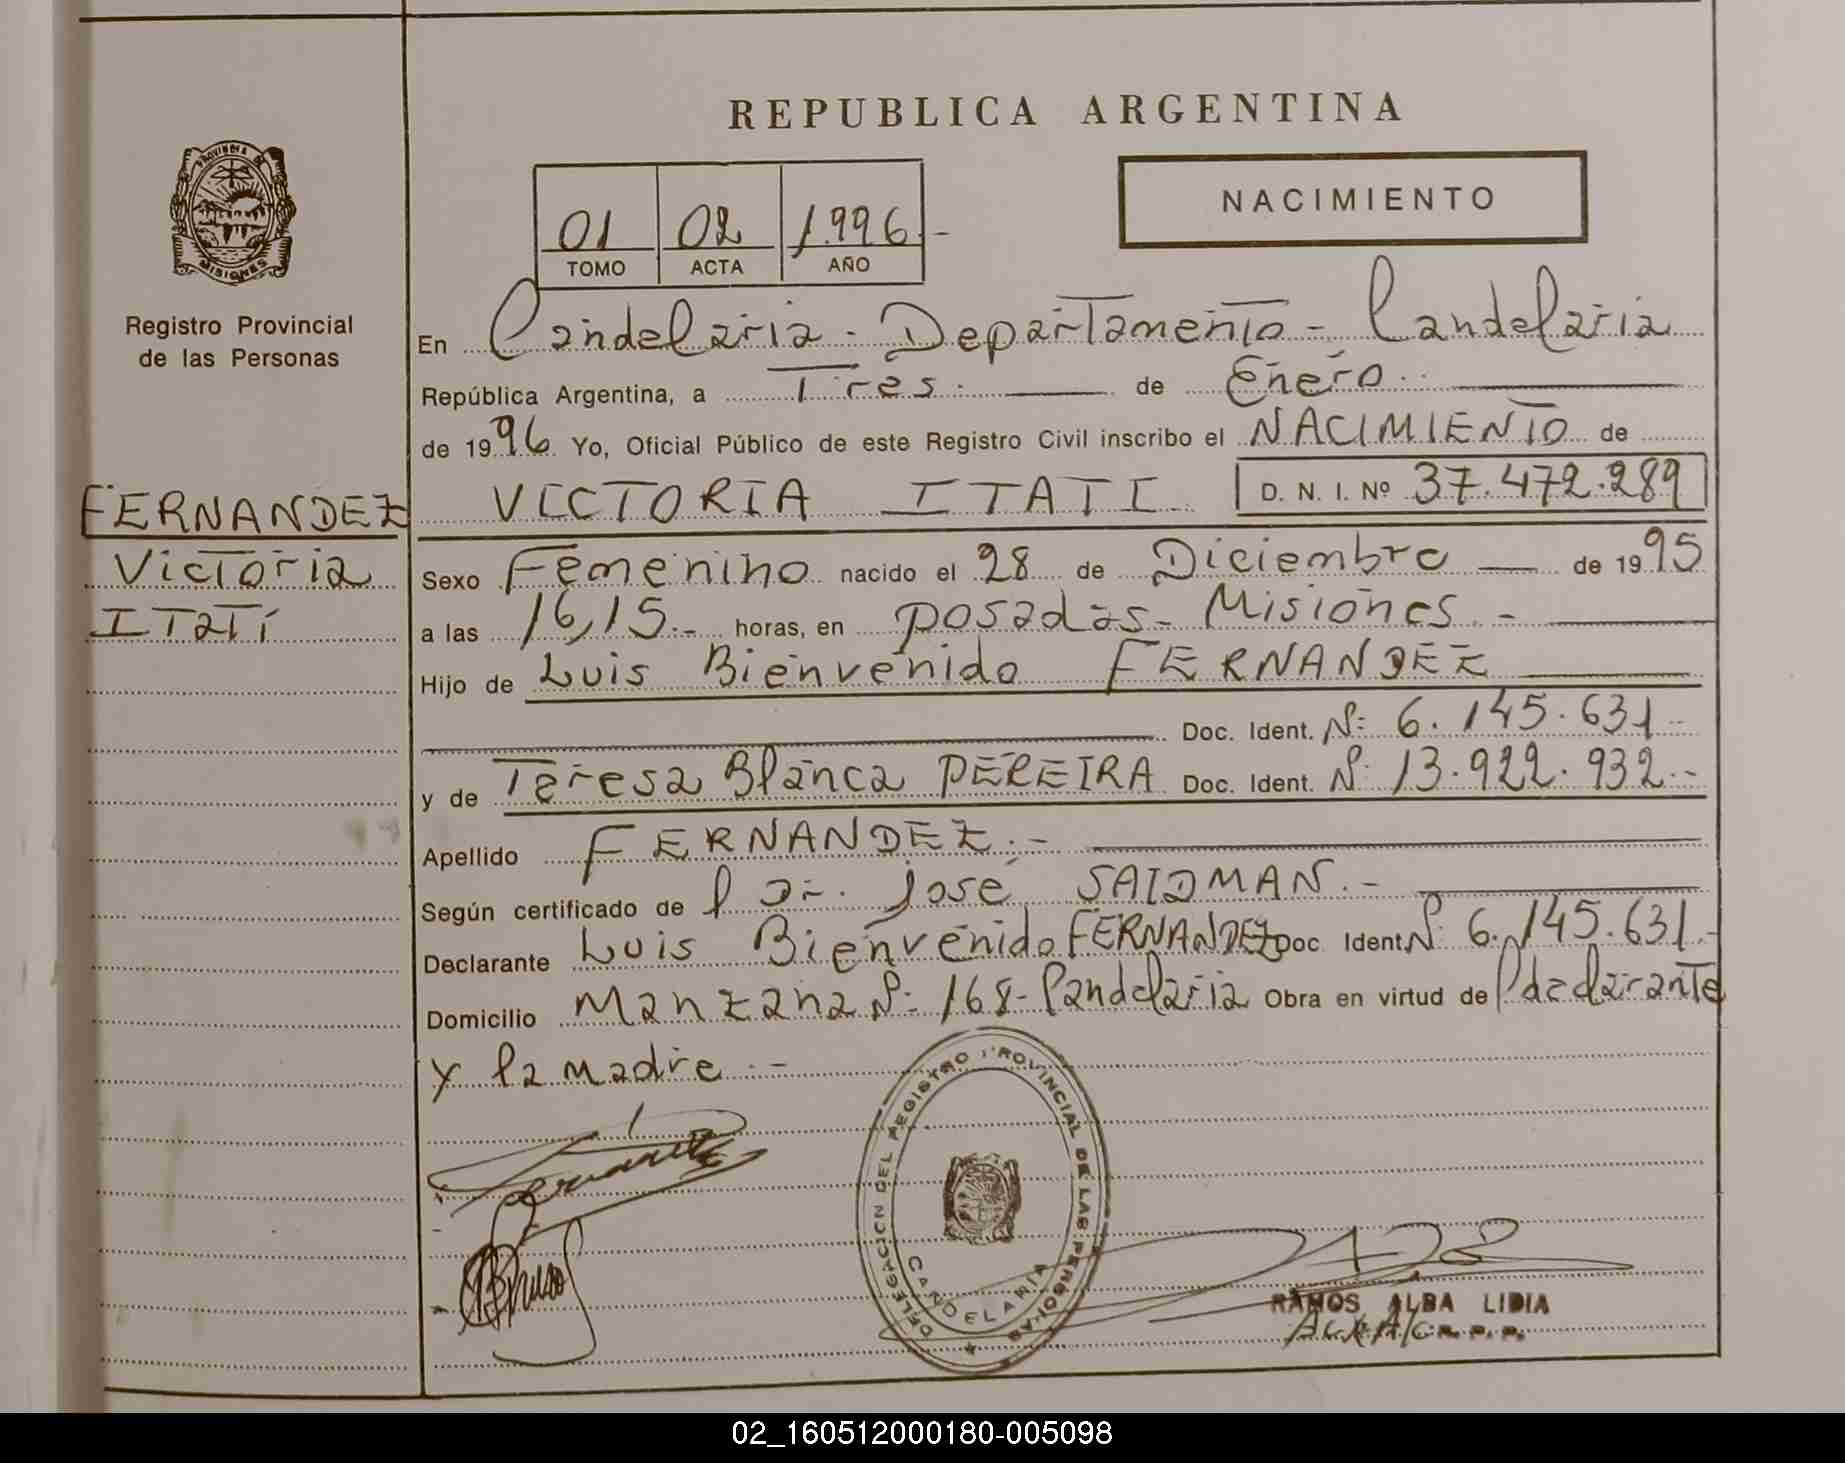 REPUBLICA ARGENTINA
NACIMIENTO
01 02 1.996.-
TOMO ACTA AÑO
PROVINCIA DE MISIONES
Registro Provincial
de las Personas
En Candelaria - Departamento - Candelaria
República Argentina, a Tres. de Enero.
de 1996 Yo, Oficial Público de este Registro Civil inscribo el NACIMIENTO de
FERNANDEZ
Victoria
ITATÍ
VICTORIA ITATI D. N. I. Nº 37.472.289
Sexo Femenino nacido el 28 de Diciembre de 1995
a las 16,15.- horas, en posadas - Misiones. -
Hijo de Luis Bienvenido FERNANDEZ
Doc. Ident. Nº 6.145.631
y de Teresa Blanca PEREIRA Doc. Ident. Nº 13.922.932.-
Apellido FERNANDEZ.-
Según certificado de l Dr. José SAIDMAN.-
Declarante Luis Bienvenido FERNANDEZ Doc Ident Nº 6.145.631.-
Domicilio Manzana Nº 168- Candelaria Obra en virtud de l declarante
y la madre.-
DELEGACION DEL REGISTRO PROVINCIAL DE LAS PERSONAS
CANDELARIA
RAMOS ALBA LIDIA
02_160512000180-005098